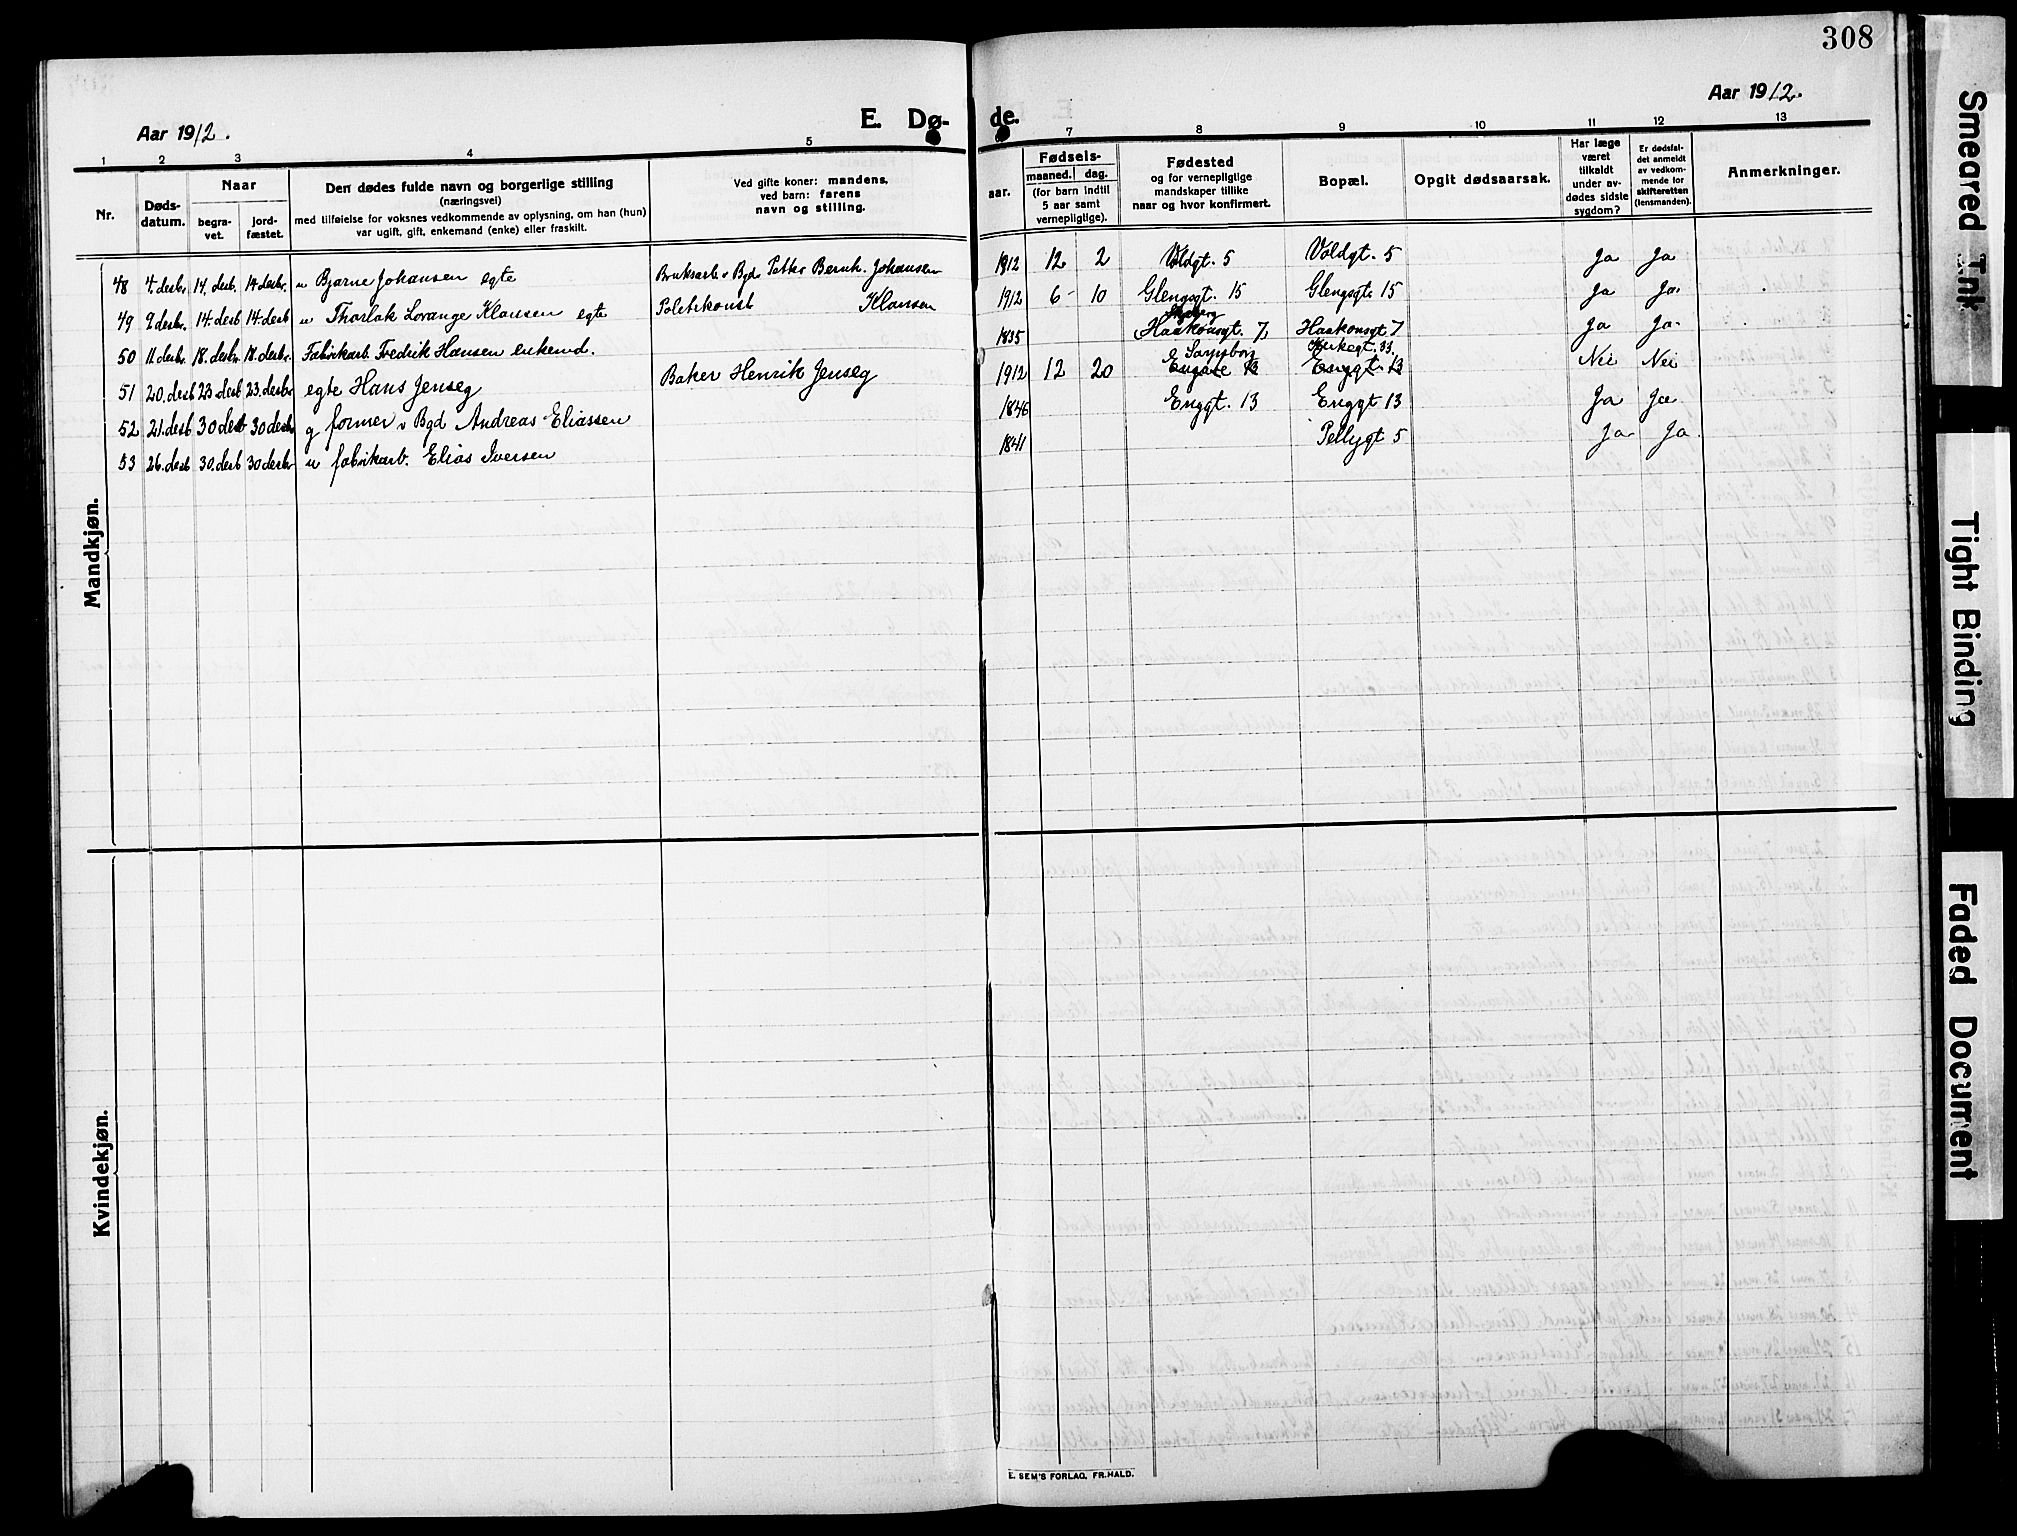 308
Aar 1912.
E. Dø-
de.
Aar 1912.
1 2 3 4 5 7 8 9 10 11 12 13
Nr.
Døds-
datum.
Naar
begra-
vet.
jord-
fæstet.
Den dødes fulde navn og borgerlige stilling
(næringsvei)
med tilføielse for voksnes vedkommende av oplysning, om han (hun)
var ugift, gift, enkemand (enke) eller fraskilt.
Ved gifte koner: mandens,
ved barn: farens
navn og stilling.
Fødsels-
aar.
maaned. dag.
(for barn indtil
5 aar samt
vernepligtige).
Fødested
og for vernepligtige
mandskaper tillike
naar og hvor konfirmert.
Bopæl.
Opgit dødsaarsak.
Har læge
været
tilkaldt
under av-
dødes sidste
sygdom?
Er dødsfal-
det anmeldt
av vedkom-
mende for
skifteretten
(lensmanden).
Anmerkninger.
Mandkjøn.
48 4. desbr 14. desb. 14 desbr. u Bjarne Johansen egte Bruksarb. v Bgd Petter Bernh. Johansen 1912 12 2 Voldgt. 5 Voldgt. 5 Ja Ja
49 9 desbr. 14. desb 14. desb u Thorlak Lorange Klausen egte Politikonst Klausen 1912 6 10 Glengsgt. 15 Glengsgt. 15 Ja Ja
50 11. desbr. 18. desbr 18. desbr. Fabrikarb. Fredrik Hansen enkemd. 1835 Skjeberg Haakonsgt. 7 Haakonsgt 7 Ja Ja
51 20. desb 23 desb 23. desbr egte Hans Jenseg Baker Henrik Jenseg 1912 12 20 Sarpsborg Kirkegt. 33. Enggt. 13 Nei Nei
52 21. desb 30 desb 30 desbr g former v Bgd Andreas Eliassen 1846 Enggt. 13 Enggt 13 Ja Ja
53 26. desb 30. desb 30 desbr u fabrikarb. Elias Iversen 1841 Pellygt 5 Ja Ja
Kvindekjøn.
E. SEM'S FORLAG, FR.HALD.
Smeared Ink
Tight Binding
Faded Document